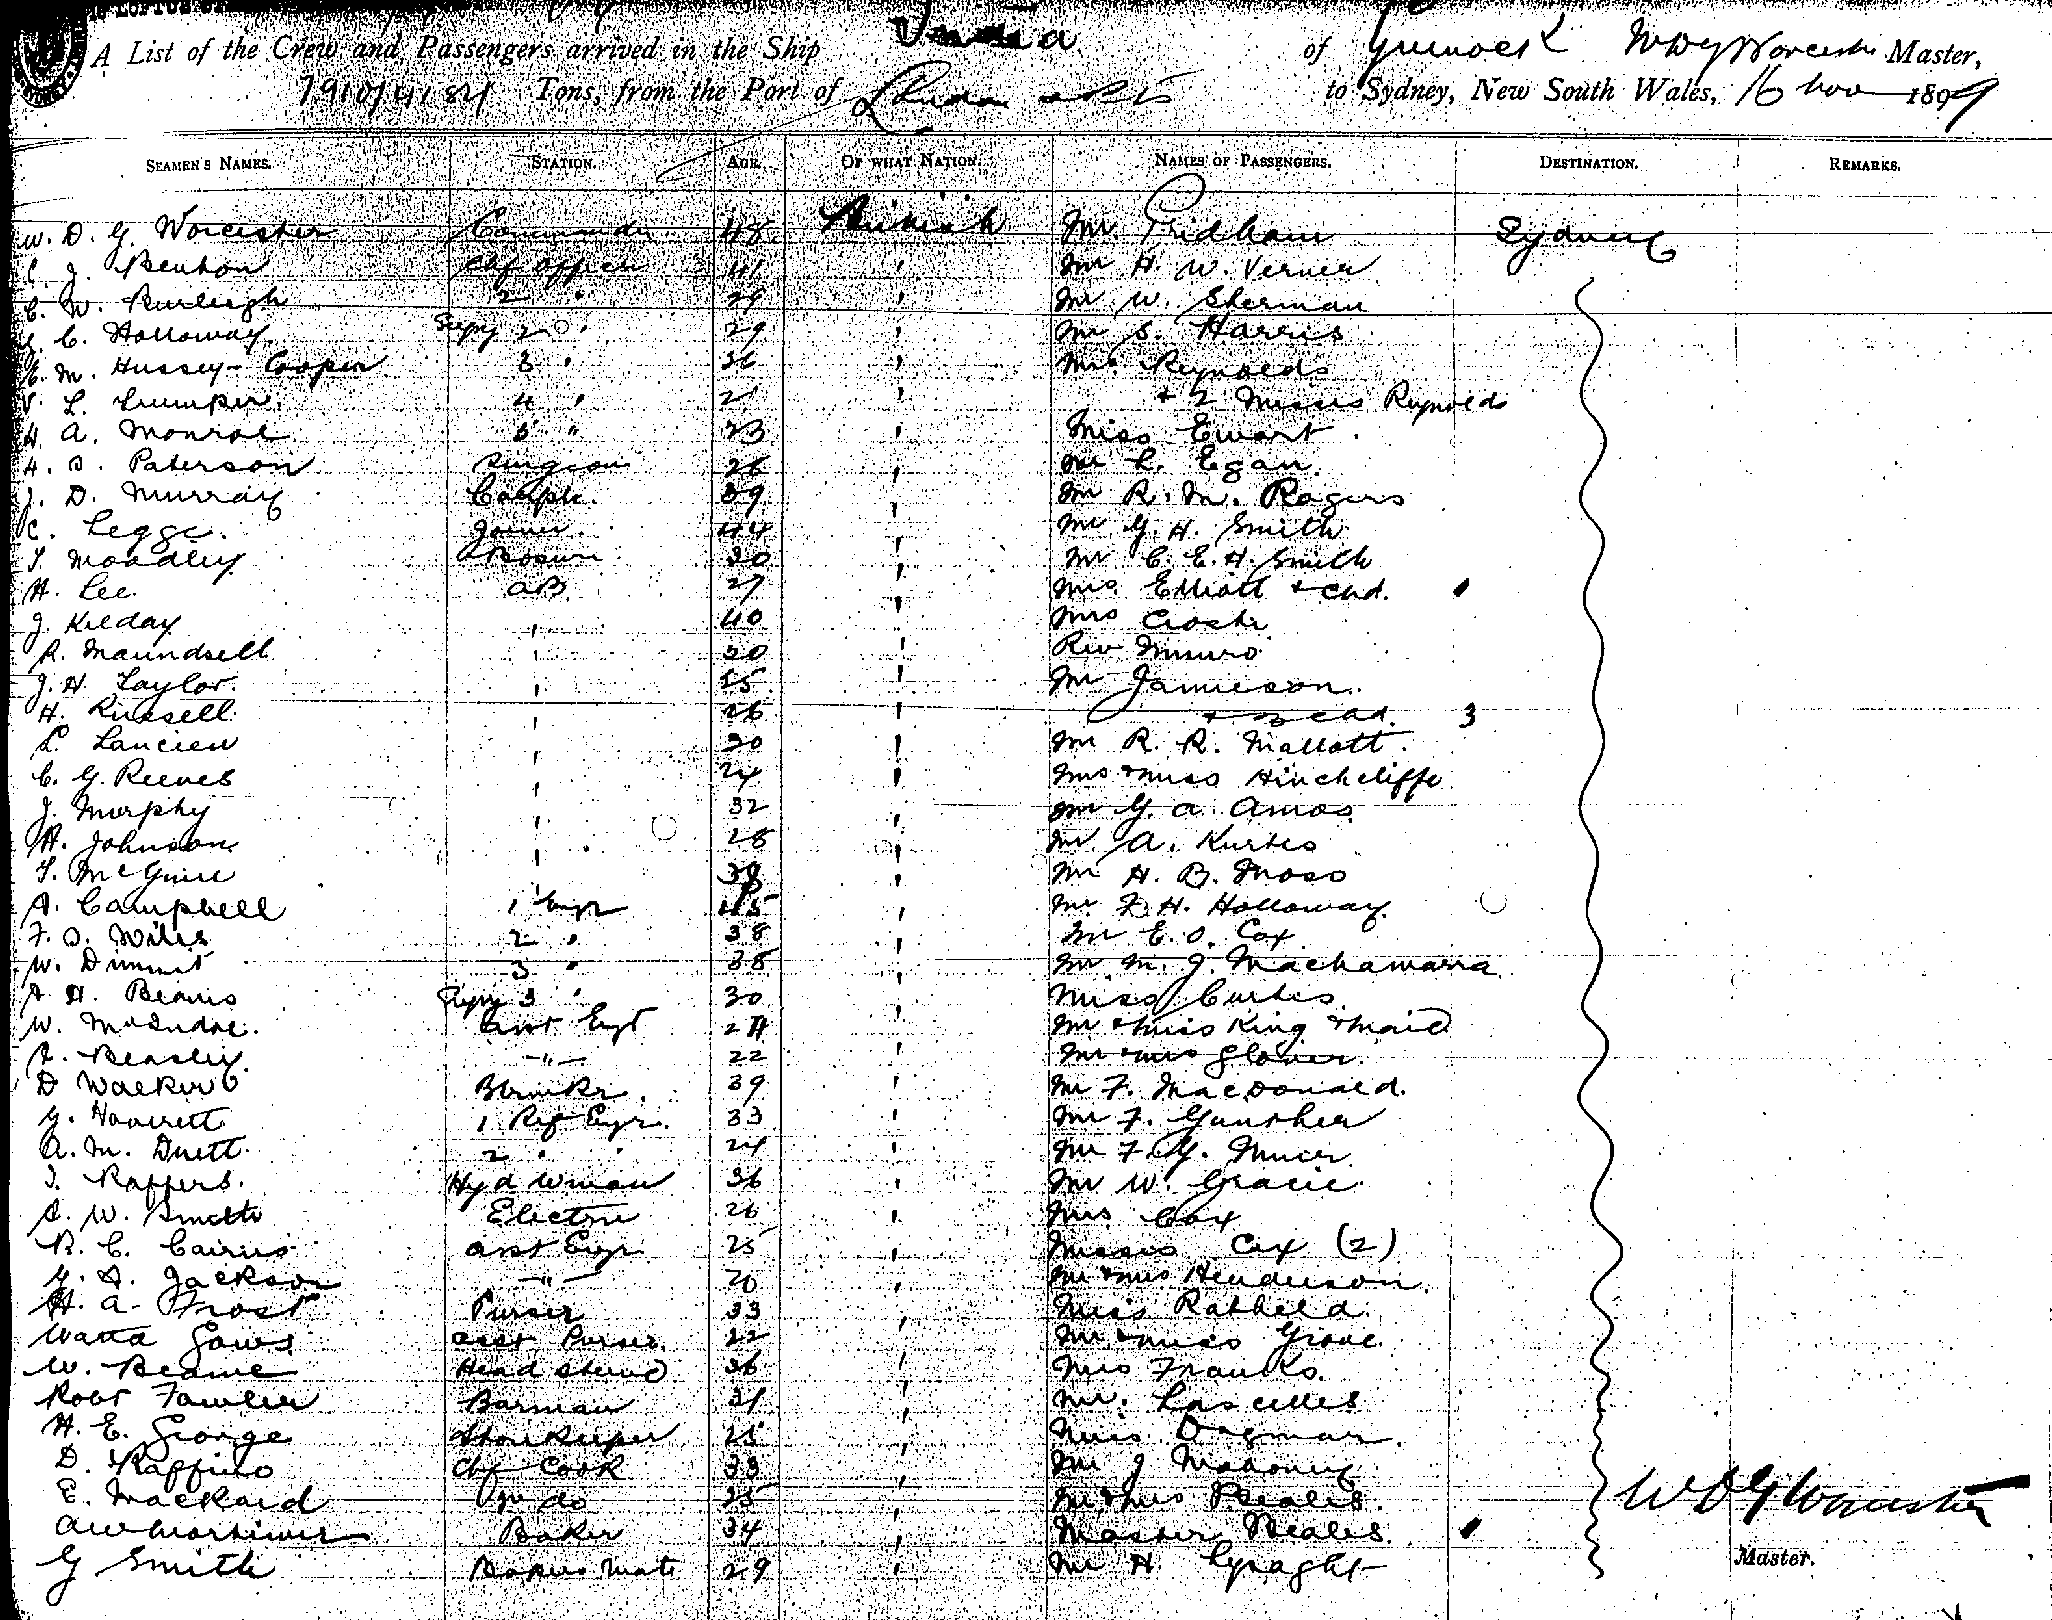 A List of the Crew and Passengers arrived in the Ship India of Greenock W D G Worcester Master,
7910/4184 Tons, from the Port of London to Sydney, New South Wales, 16 Nov 1899
SEAMEN'S NAMES. STATION. AGE. OF WHAT NATION. NAMES OF PASSENGERS. DESTINATION. REMARKS.
W. D. G. Worcester Commander 48 British Mr. Pridham Sydney
J. Benton Chf Officer 41 " Mr H. W. Verner
C. W. Burleigh 2 " 29 " Mr W. Sherman
C. Holloway Supy 2 " 29 " Mr S. Harris
E. M. Hussey-Cooper 3 " 36 " Reynolds
L. 4 " 21 " + 2 Misses Reynolds
H. A. Monroe 5 " 23 " Miss Ewart
H. S. Paterson Surgeon 26 " Mr L. Egan
J. D. Murray Carptr. 39 " Mr R. M. Rogers
C. Legge Joiner 44 " Mr G. H. Smith
T. Moodley Bosun 30 " Mr C. E. H. Smith
H. Lee AB 27 " Mrs Elliott + chd.
J. Kilday " 40 " Mrs
R. Maundsell " 20 " Rev Munro
J. H. Taylor " 55 " Mr Jamieson
H. Russell " 26 " + 3 chd. 3
L. Lancien " 30 " Mr R. R. Mallott
C. G. Reeves " 24 " Mrs + Miss Hinchcliffe
J. Murphy " 32 " Mr G. A. Amos
H. Johnson " 28 " Mr A. Kurtes
T. McGuire " " Mr H. B. Moss
A. Campbell 1 Engr 45 " Mr F. H. Holloway
F. S. Wiles 2 " 38 " Mr E. O. Cox
W. Dimmit 3 " 38 " Mr M. J. Machamara
A. H. Beams Supy 3 " 30 " Miss Curtis
W. McIndoe Asst Engr " Mr + Miss King + Maid
A. Beasley -"- 22 " Mr + Mrs Glover
D Walker Blrmkr. 39 " Mr F. MacDonald
G. Haverett 1 Ref Engr. 33 " Mr F. Gunther
A. M. Duett 2 " 24 " Mr F. G.
36 " Mr W. Gracie
S. W. Smith Electrn 26 " Mrs Cox
R. C. Cairns Asst Engr 25 " Misses Cox (2)
G. A. Jackson -"- 20 " Mr + Mrs Henderson
H. A. Frost Purser 33 " Miss
Asst Purser 22 " Mr + Miss Grove
W. Beame Head Stewd 36 " Mrs Franks
Robt Fowler Barman 31 " Mr. Lascelles
H. E. George Storekeeper 25 " Miss Dagmar
D. Raffino Chf Cook 33 " Mr J Mahoney
E. Mackaid do 25 " Mr + Mrs Beales W D G Worcester
A W Mortimer Baker 34 " Master Beales
G Smith Bakers Mate 29 " Mr H Master.